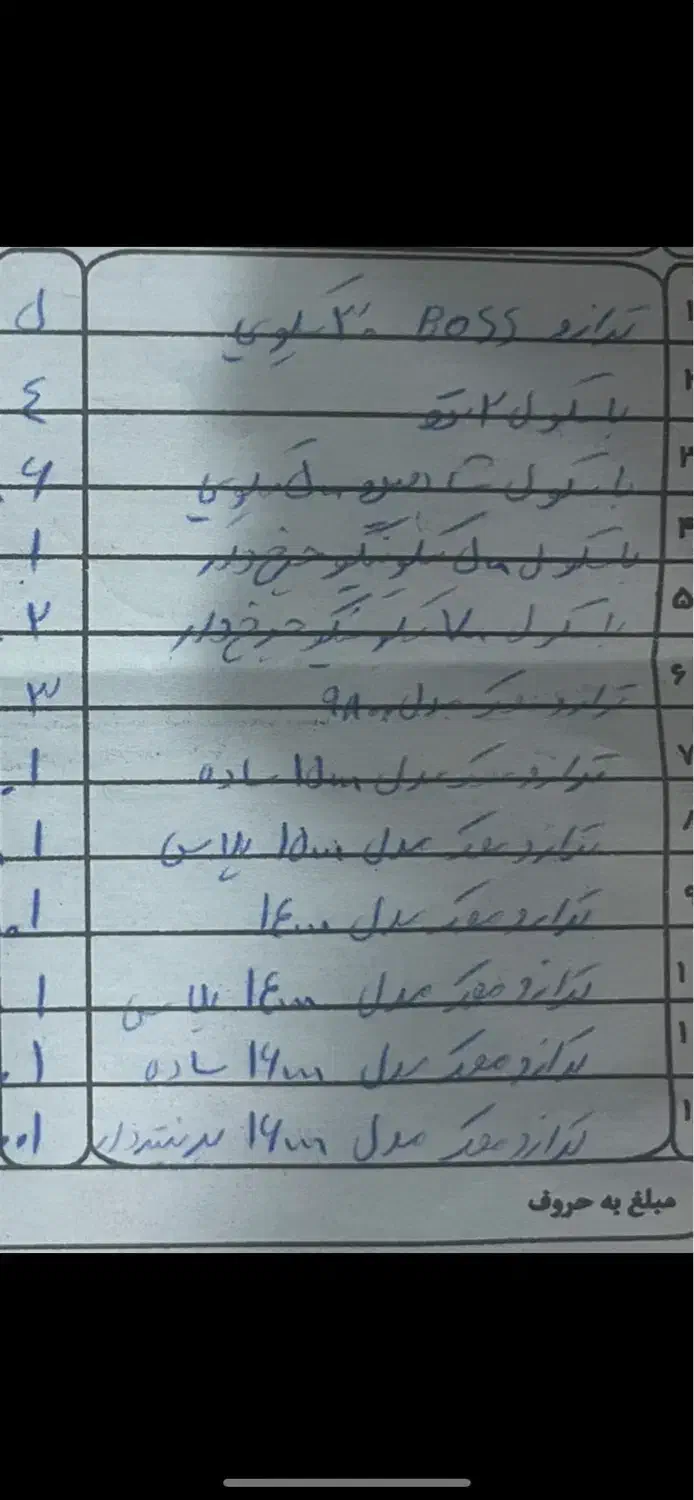 ۱ ترازو BOSS ۳۰ کیلویی ۵
۲ باسکول ۲ تنی ٤
۳ باسکول ۵۰۰ کیلویی ۶
۴ باسکول ۵۰۰ کیلوئی چرخ‌دار ۱
۵ باسکول ۷۰۰ کیلوئی چرخ‌دار ۲
۶ ترازو محک مدل ۹۸۰۰ ۳
۷ ترازو محک مدل ۱۵۰۰۰ ساده ۱
ترازو محک مدل ۱۵۰۰۰ پلاس ۱
ترازو محک مدل ۱٤۰۰۰ ۱
ترازو محک مدل ۱٤۰۰۰ پلاس ۱
ترازو محک مدل ۱۶۰۰۰ ساده ۱
ترازو محک مدل ۱۶۰۰۰ پرینتردار
مبلغ به حروف